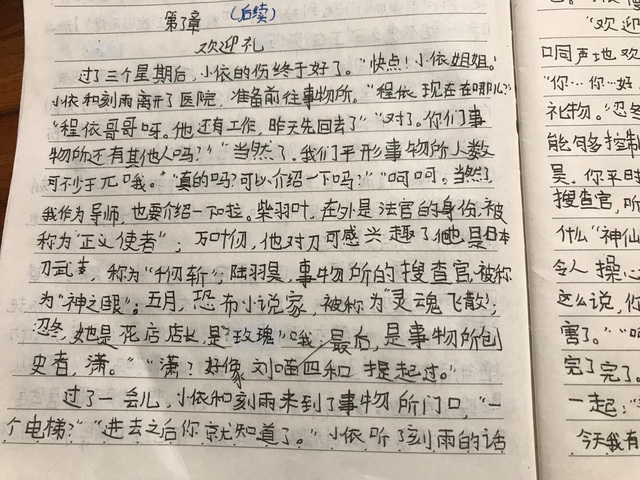 第3章 (后续)
欢迎礼
过了三个星期后，小依的伤终于好了。“快点！小依姐姐。”
小依和刻雨离开了医院，准备前往事物所。“程依现在在哪儿？”
“程依哥哥呀。他还有工作，昨天先回去了”“对了。你们事
物所还有其他人吗？”“当然了。我们平形事物所人数
可不少于兀哦。”“真的吗？可以介绍一下吗？”“呵呵。当然了，
我作为导师，也要介绍一下啦。柴羽叶，在外是法官的身份，被
称为“正义使者”；万叶仞，他对刀可感兴趣了，他是日本
刀武士，称为“千仞斩”；陆羽昊，事物所的搜查官，被称
为“神之眼”；五月，恐布小说家，被称为“灵魂飞散”；
忍冬，她是花店店长，是“玫瑰”哦；最后，是事物所创
史者，潇。”“潇？好像刘喵四和提起过。”
过了一会儿，小依和刻雨来到了事物所门口，“一
个电梯？”“进去之后你就知道了。”小依听了刻雨的话
“欢迎
口同声地欢
“你…你好
礼物。”忍冬
能够多控制
昊。你平时
搜查官，听
什么“神仙
令人操心
这么说，你
害了。”
完了完了。
一起：“
今天我有